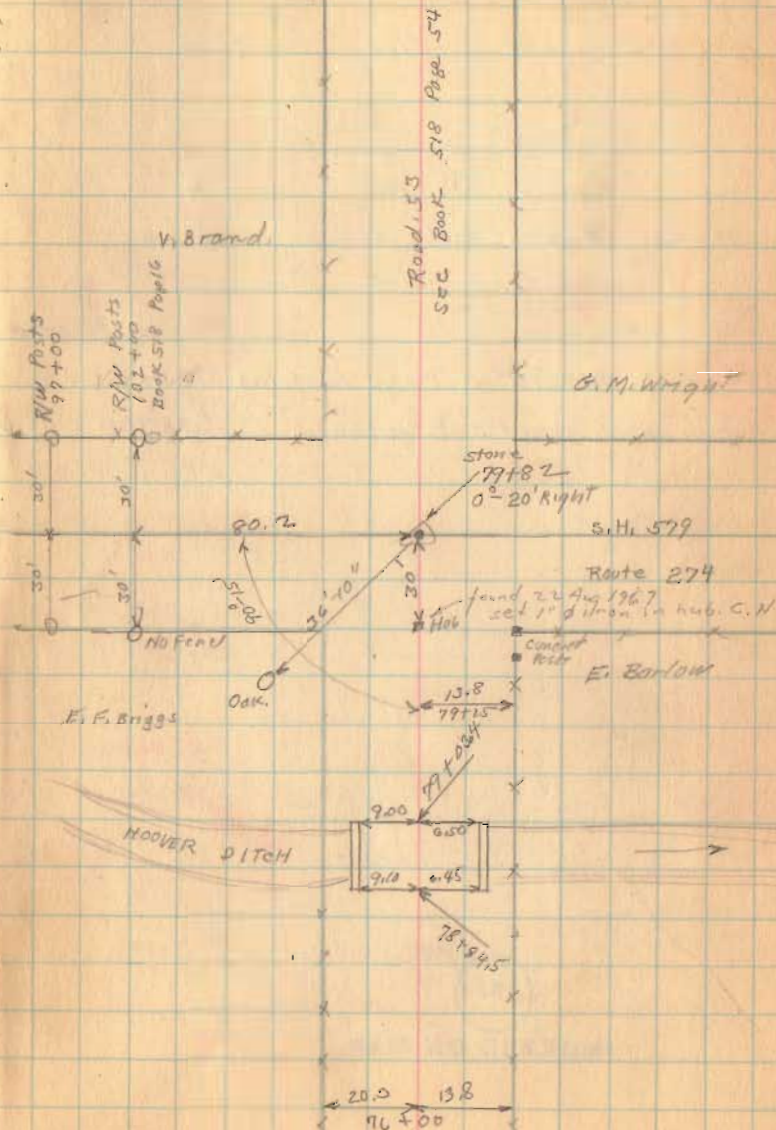 Road 53
SEE BOOK 518 Page 54
V. Brand
R/W Posts
97+00
R/W Posts
102+00
BOOK 518 Page 16
G. M. Wright
stone
79+82
0°-20' Right
30'
30'
80.2
S.H. 579
Route 274
30'
30'
90°-15'
36'-10"
30'
found 22 Aug 1967
set 1" ø iron in hub. C.N.
Hub
No Fence
Concrete
Posts
E. Barlow
Oak.
13.8
79+25
E. F. Briggs
79+03.4
9.00
6.50
HOOVER DITCH
9.10
6.45
78+84.5
20.0
13.8
76+00